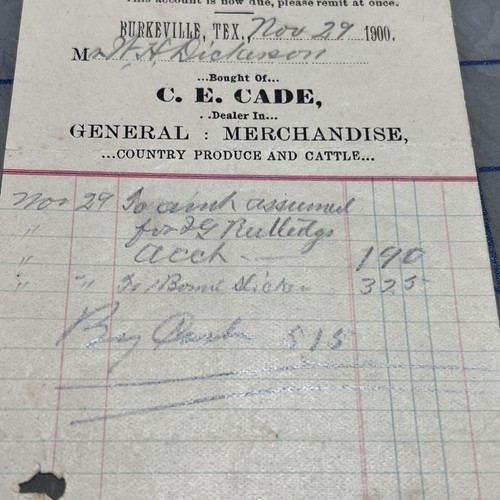 This account is now due, please remit at once.
BURKEVILLE, TEX., Nov 29 1900.
Mr W. H. Dickerson
...Bought of...
C. E. CADE,
..Dealer In...
GENERAL : MERCHANDISE,
...COUNTRY PRODUCE AND CATTLE...
Nov 29 To amt assumed
" for J G Rutledge
" acct — 190
" " To 1 Slicker 325
By Cash 515